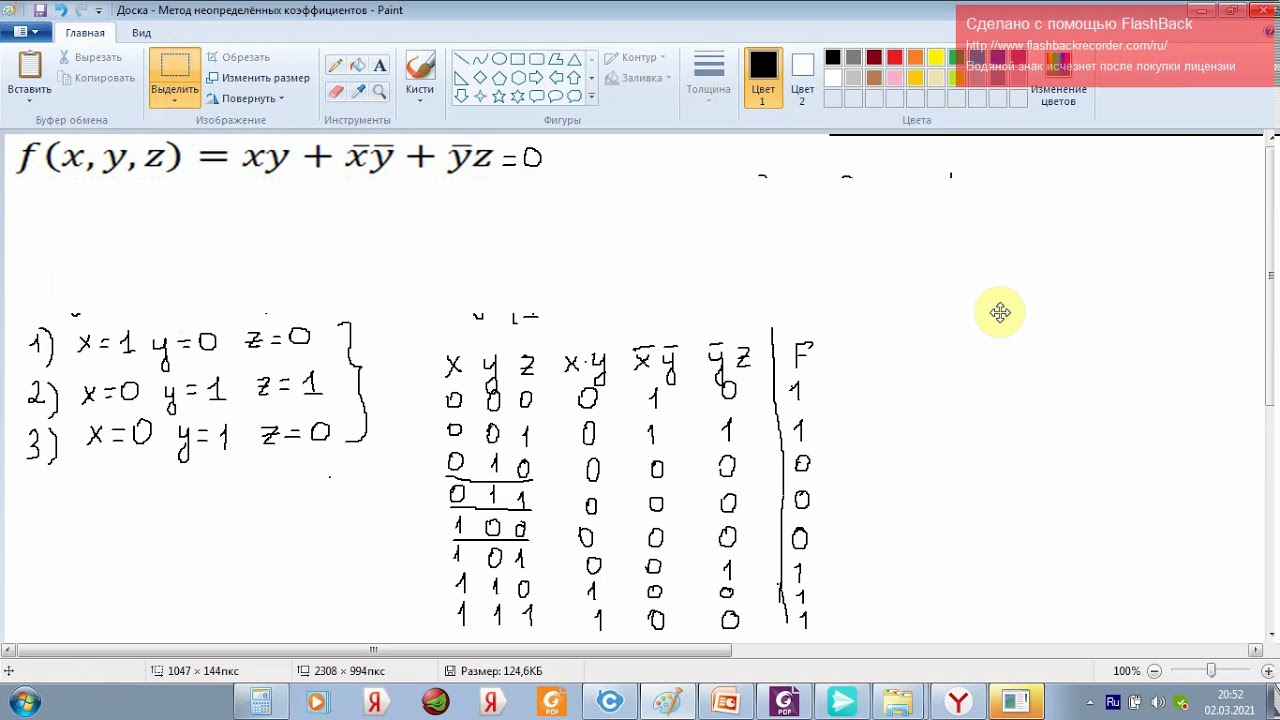 Доска - Метод неопределённых коэффициентов - Paint
Сделано с помощью FlashBack
http://www.flashbackrecorder.com/ru/
Водяной знак исчезнет после покупки лицензии
Главная Вид
Вставить
Вырезать
Копировать
Буфер обмена
Выделить
Обрезать
Изменить размер
Повернуть
Изображение
Инструменты
Кисти
Контур
Заливка
Фигуры
Толщина
Цвет 1
Цвет 2
Изменение цветов
Цвета
f(x, y, z) = xy + x̅y̅ + y̅z = 0
1) x=1 y=0 z=0
2) x=0 y=1 z=1
3) x=0 y=1 z=0
x y z x·y x̅ y̅ y̅ z F
0 0 0 0 1 0 1
0 0 1 0 1 1 1
0 1 0 0 0 0 0
0 1 1 0 0 0 0
1 0 0 0 0 0 0
1 0 1 0 0 1 1
1 1 0 1 0 0 1
1 1 1 1 0 0 1
1047 × 144пкс
2308 × 994пкс
Размер: 124,6КБ
100%
PDF
PDF
Ru
20:52
02.03.2021